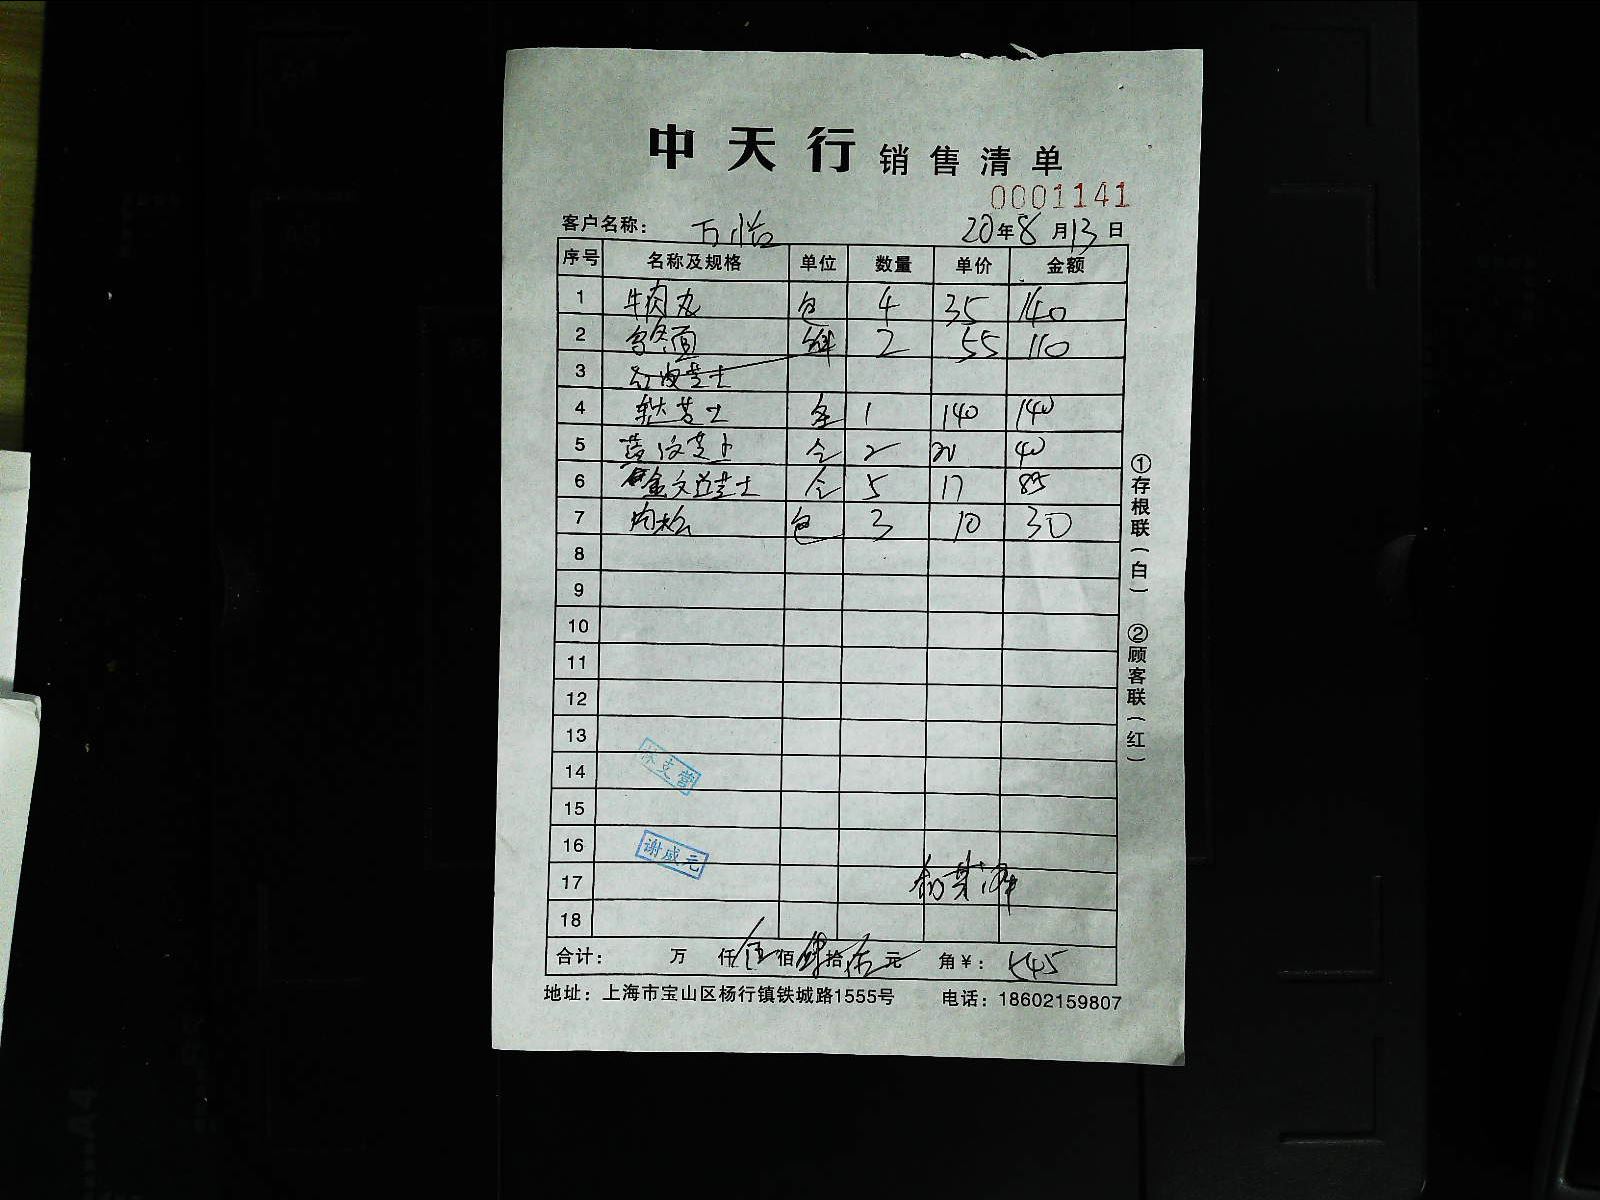 中天行 销售清单
0001141
客户名称： 万怡 20年8月13日
序号 名称及规格 单位 数量 单价 金额
1 牛肉丸 包 4 35 140
2 乌冬面 2 55 110
3 芝士
4 芝士 1 140 140
5 芝士 个 2 20 40
6 芝士 个 5 17 85
7 肉松 包 3 10 30
8
9
10
11
12
13
14
15
16 谢盛元
17
18
合计： 万 仟伍佰肆拾伍元 角￥： 545
地址：上海市宝山区杨行镇铁城路1555号 电话：18602159807
①存根联(白) ②顾客联(红)